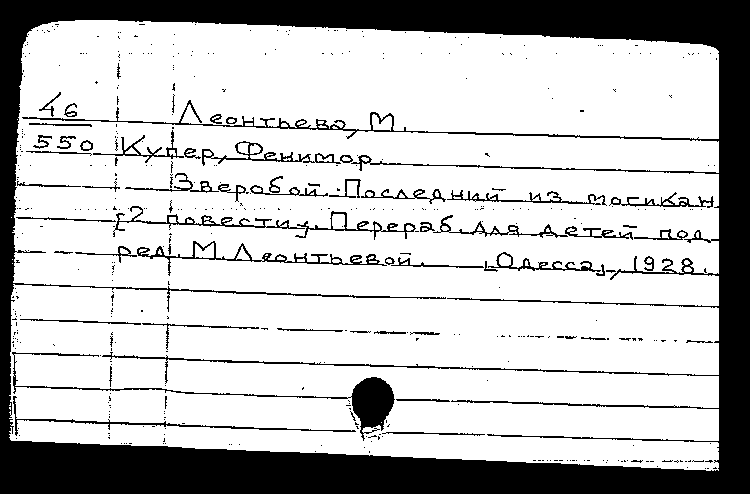 46
550
Леонтьева, М.
Купер, Фенимор.
Зверобой. Последний из могикан
[2 повести]. Перераб. для детей под
ред. М. Леонтьевой. [Одесса], 1928.